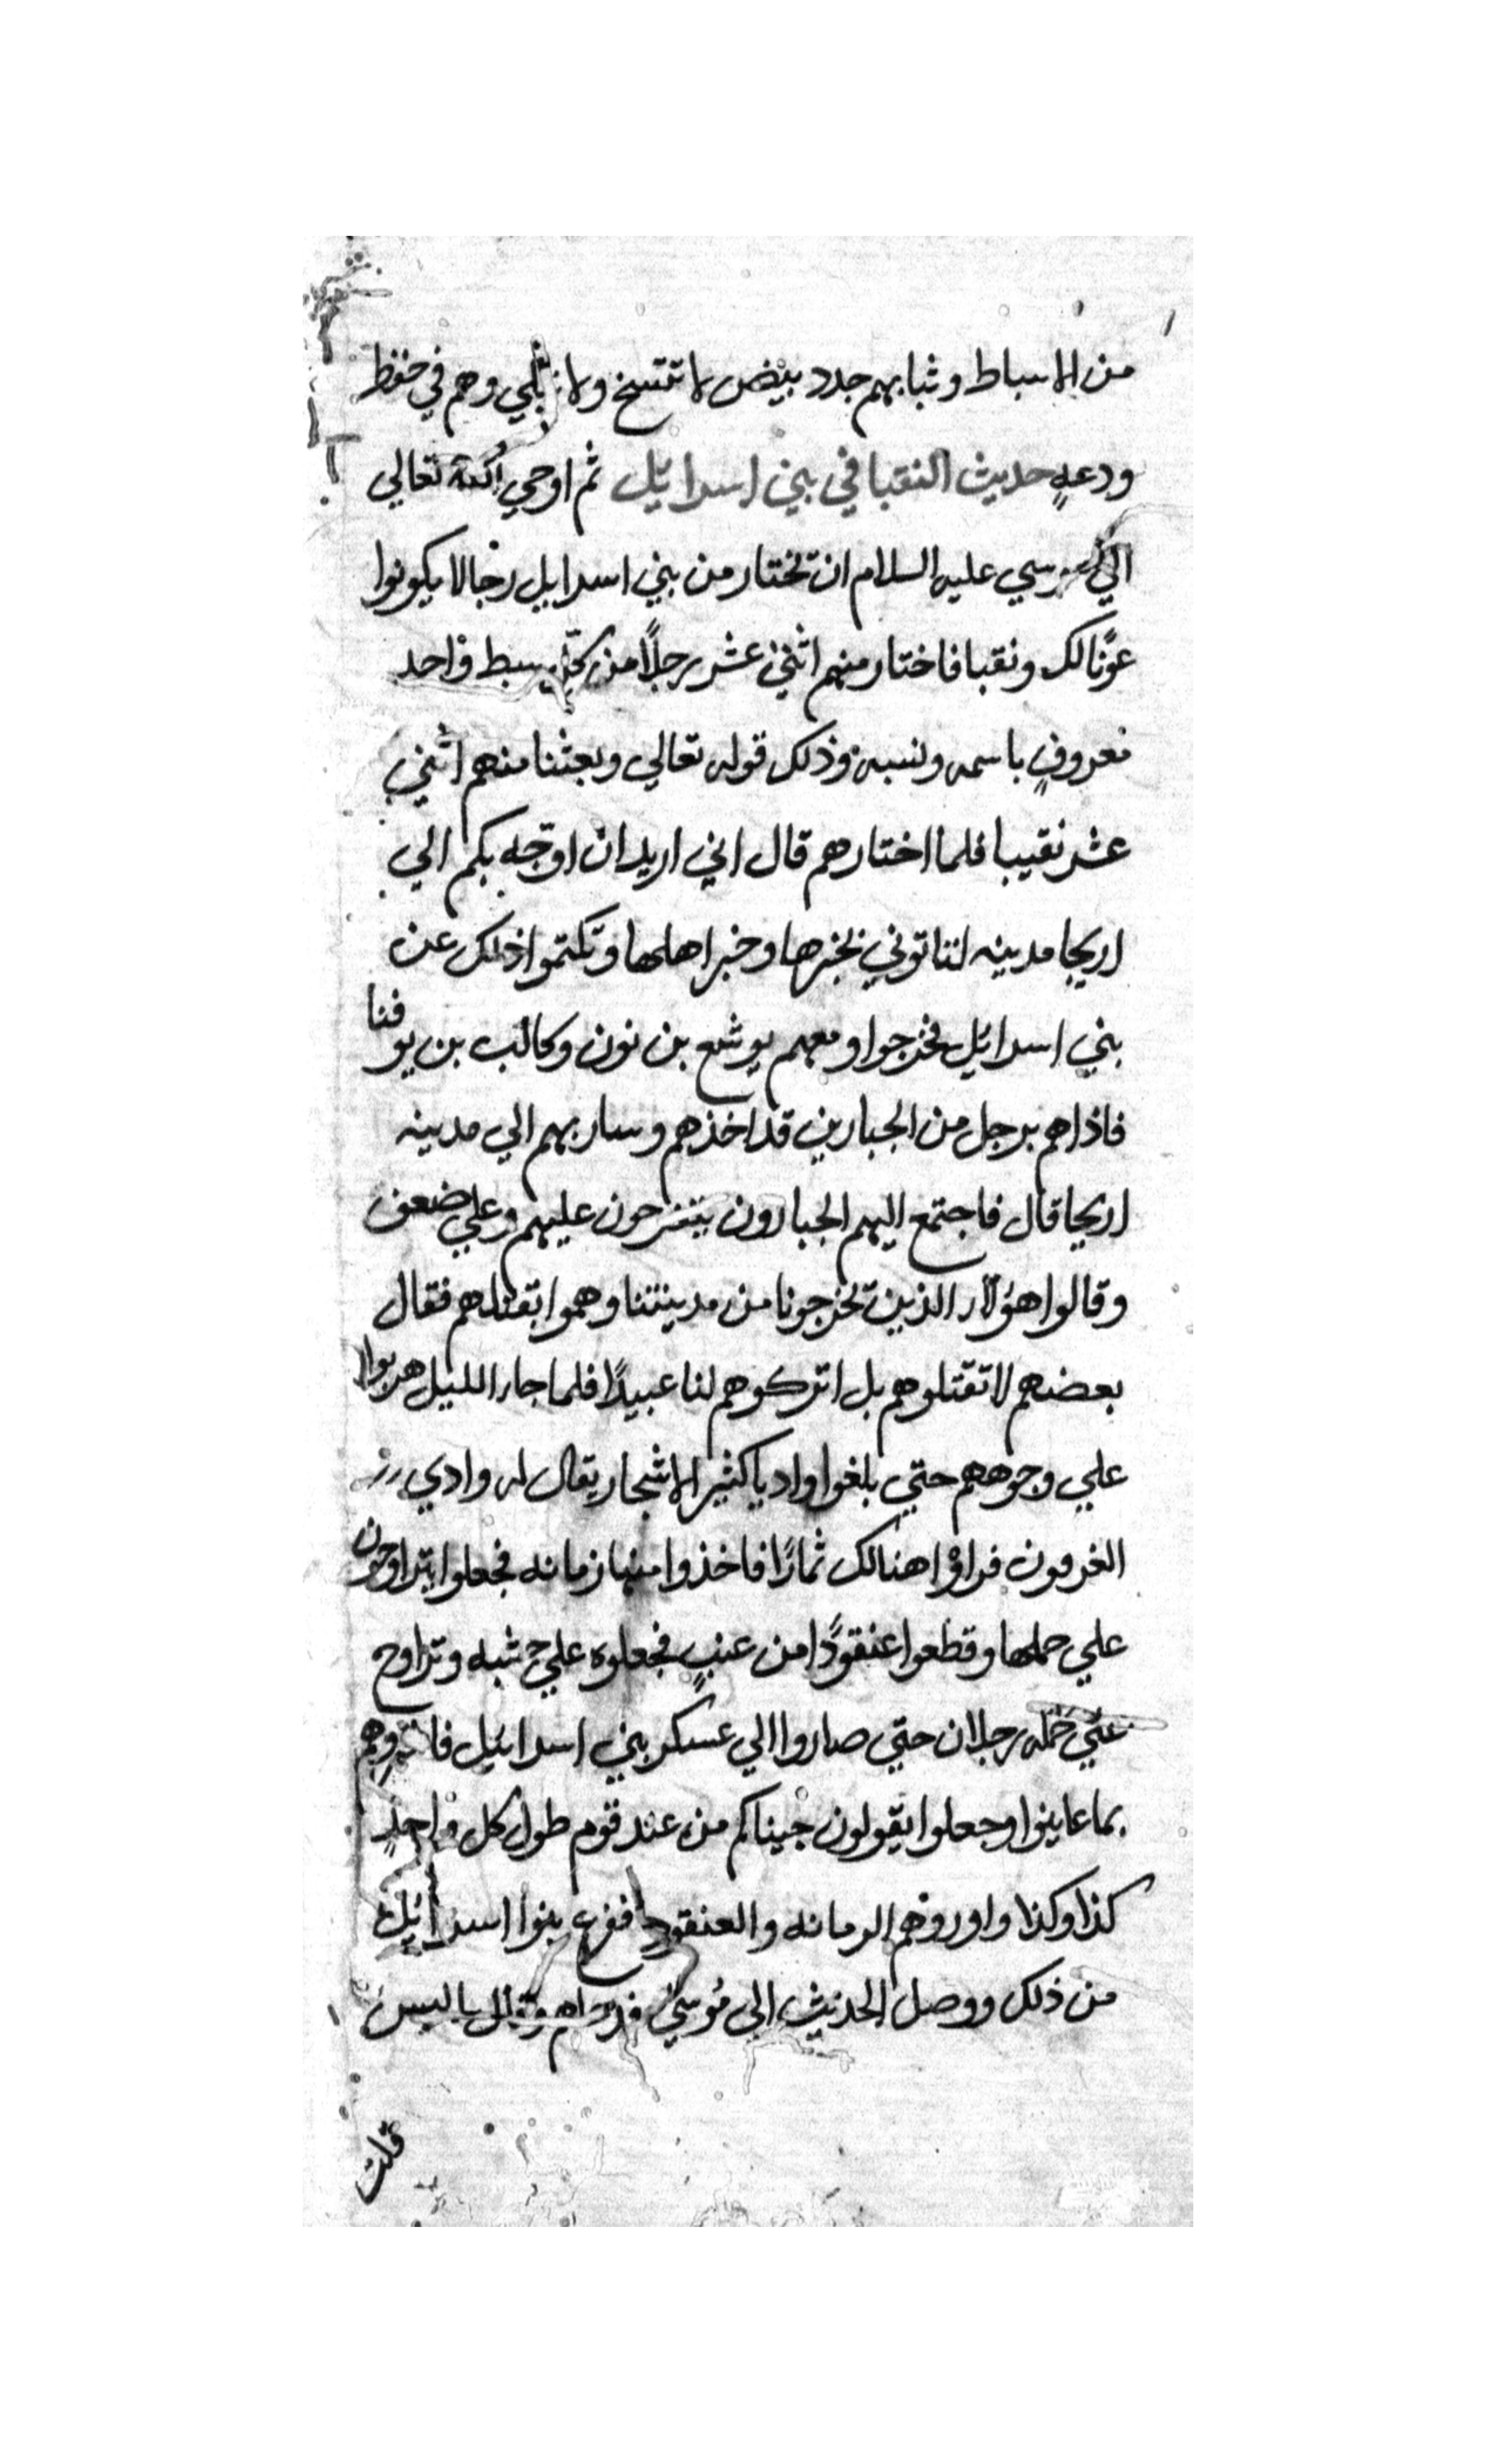 من الاسباط وثيابهم جدد بيض لا تتسخ ولا تبلي وهم في خفظ
ودعةٍ حديث النقبا في بني اسرائيل ثم اوحي الله تعالي
الي موسي عليه السلام ان تختار من بني اسرايل رجالا يكونوا
عونًا لك ونقبا فاختار منهم اثني عشر رجلًا من كل سبط واحد
معروفٍ باسمه ونسبه وذلك قوله تعالي وبعثنا منهم اثني
عشر نقيبا فلما اختارهم قال اني اريد ان اوجّه بكم الي
اريحا مدينه لتاتوني بخبرها وخبر اهلها وتكتموا ذلك عن
بني اسرائيل فخرجوا ومعهم يوشع بن نون وكالب بن يوفنا
فاذاهم برجل من الجبارين قد اخذهم وسار بهم الي مدينه
اريحا قال فاجتمع اليهم الجبارون يتفرجون عليهم وعلي ضعف
وقالوا هؤلاء الذين تخرجونا من مدينتنا وهموا بقتلهم فقال
بعضهم لا تقتلوهم بل اتركوهم لنا عبيدًا فلما جاء الليل هربوا
علي وجوههم حتي بلغوا واديا كثير الاشجار يقال له وادي
فراؤا هنالك ثمارًا فاخذوا منها زمانه فجعلوا يتراوحون
علي حملها وقطعوا عنقودًا من عنبٍ فجعلوه علي خشبه وتراوح
علي حمله رجلان حتي صاروا الي عسكر بني اسرائيل
بما عاينوا وجعلوا يقولون جيناكم من عند قوم طول كل واحدٍ
كذا وكذا واوروهم الرمانه والعنقود ففزع بنوا اسرائيل
من ذلك ووصل الحديث الي موسي وقال يا ليس
قلت